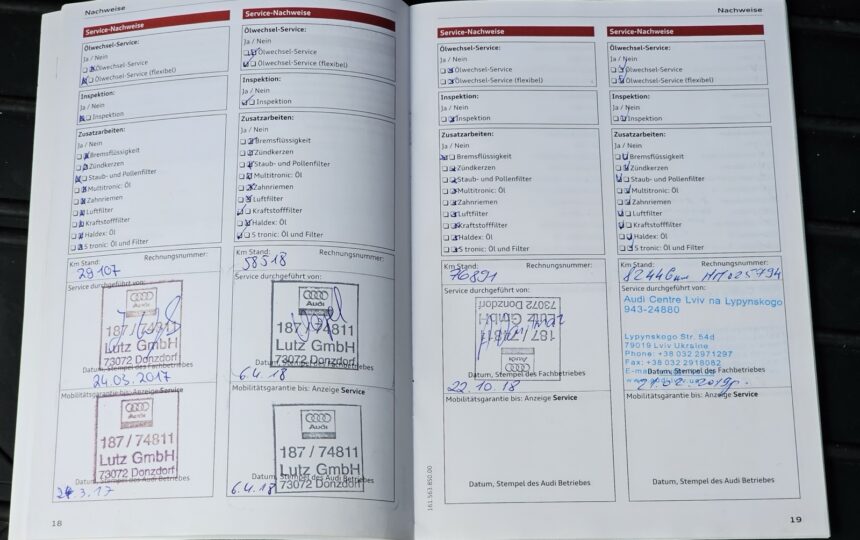 Nachweise
Service-Nachweise
Ölwechsel-Service:
Ja / Nein
Ölwechsel-Service
Ölwechsel-Service (flexibel)
Inspektion:
Ja / Nein
Inspektion
Zusatzarbeiten:
Ja / Nein
Bremsflüssigkeit
Zündkerzen
Staub- und Pollenfilter
Multitronic: Öl
Zahnriemen
Luftfilter
Kraftstofffilter
Haldex: Öl
S tronic: Öl und Filter
Km Stand: Rechnungsnummer:
29107
Service durchgeführt von:
Audi
187 / 74811
Lutz GmbH
73072 Donzdorf
Datum, Stempel des Fachbetriebes
24.03.2017
Mobilitätsgarantie bis: Anzeige Service
Audi
187 / 74811
Lutz GmbH
73072 Donzdorf
Datum, Stempel des Audi Betriebes
24.3.17
18
Service-Nachweise
Ölwechsel-Service:
Ja / Nein
Ölwechsel-Service
Ölwechsel-Service (flexibel)
Inspektion:
Ja / Nein
Inspektion
Zusatzarbeiten:
Ja / Nein
Bremsflüssigkeit
Zündkerzen
Staub- und Pollenfilter
Multitronic: Öl
Zahnriemen
Luftfilter
Kraftstofffilter
Haldex: Öl
S tronic: Öl und Filter
Km Stand: Rechnungsnummer:
58518
Service durchgeführt von:
Audi
187 / 74811
Lutz GmbH
73072 Donzdorf
Datum, Stempel des Fachbetriebes
6.4.18
Mobilitätsgarantie bis: Anzeige Service
Audi
187 / 74811
Lutz GmbH
73072 Donzdorf
Datum, Stempel des Audi Betriebes
6.4.18
Nachweise
Service-Nachweise
Ölwechsel-Service:
Ja / Nein
Ölwechsel-Service
Ölwechsel-Service (flexibel)
Inspektion:
Ja / Nein
Inspektion
Zusatzarbeiten:
Ja / Nein
Bremsflüssigkeit
Zündkerzen
Staub- und Pollenfilter
Multitronic: Öl
Zahnriemen
Luftfilter
Kraftstofffilter
Haldex: Öl
S tronic: Öl und Filter
Km Stand: Rechnungsnummer:
76891
Service durchgeführt von:
73072 Donzdorf
Lutz GmbH
187 / 74811
Audi
Datum, Stempel des Fachbetriebes
22.10.18
Mobilitätsgarantie bis: Anzeige Service
Datum, Stempel des Audi Betriebes
161.563.850.00
Service-Nachweise
Ölwechsel-Service:
Ja / Nein
Ölwechsel-Service
Ölwechsel-Service (flexibel)
Inspektion:
Ja / Nein
Inspektion
Zusatzarbeiten:
Ja / Nein
Bremsflüssigkeit
Zündkerzen
Staub- und Pollenfilter
Multitronic: Öl
Zahnriemen
Luftfilter
Kraftstofffilter
Haldex: Öl
S tronic: Öl und Filter
Km Stand: Rechnungsnummer:
82446
Service durchgeführt von:
Audi Centre Lviv na Lypynskogo
943-24880
Lypynskogo Str. 54d
79019 Lviv Ukraine
Phone: +38 032 2971297
Fax: +38 032 2918082
Datum, Stempel des Fachbetriebes
Mobilitätsgarantie bis: Anzeige Service
Datum, Stempel des Audi Betriebes
19